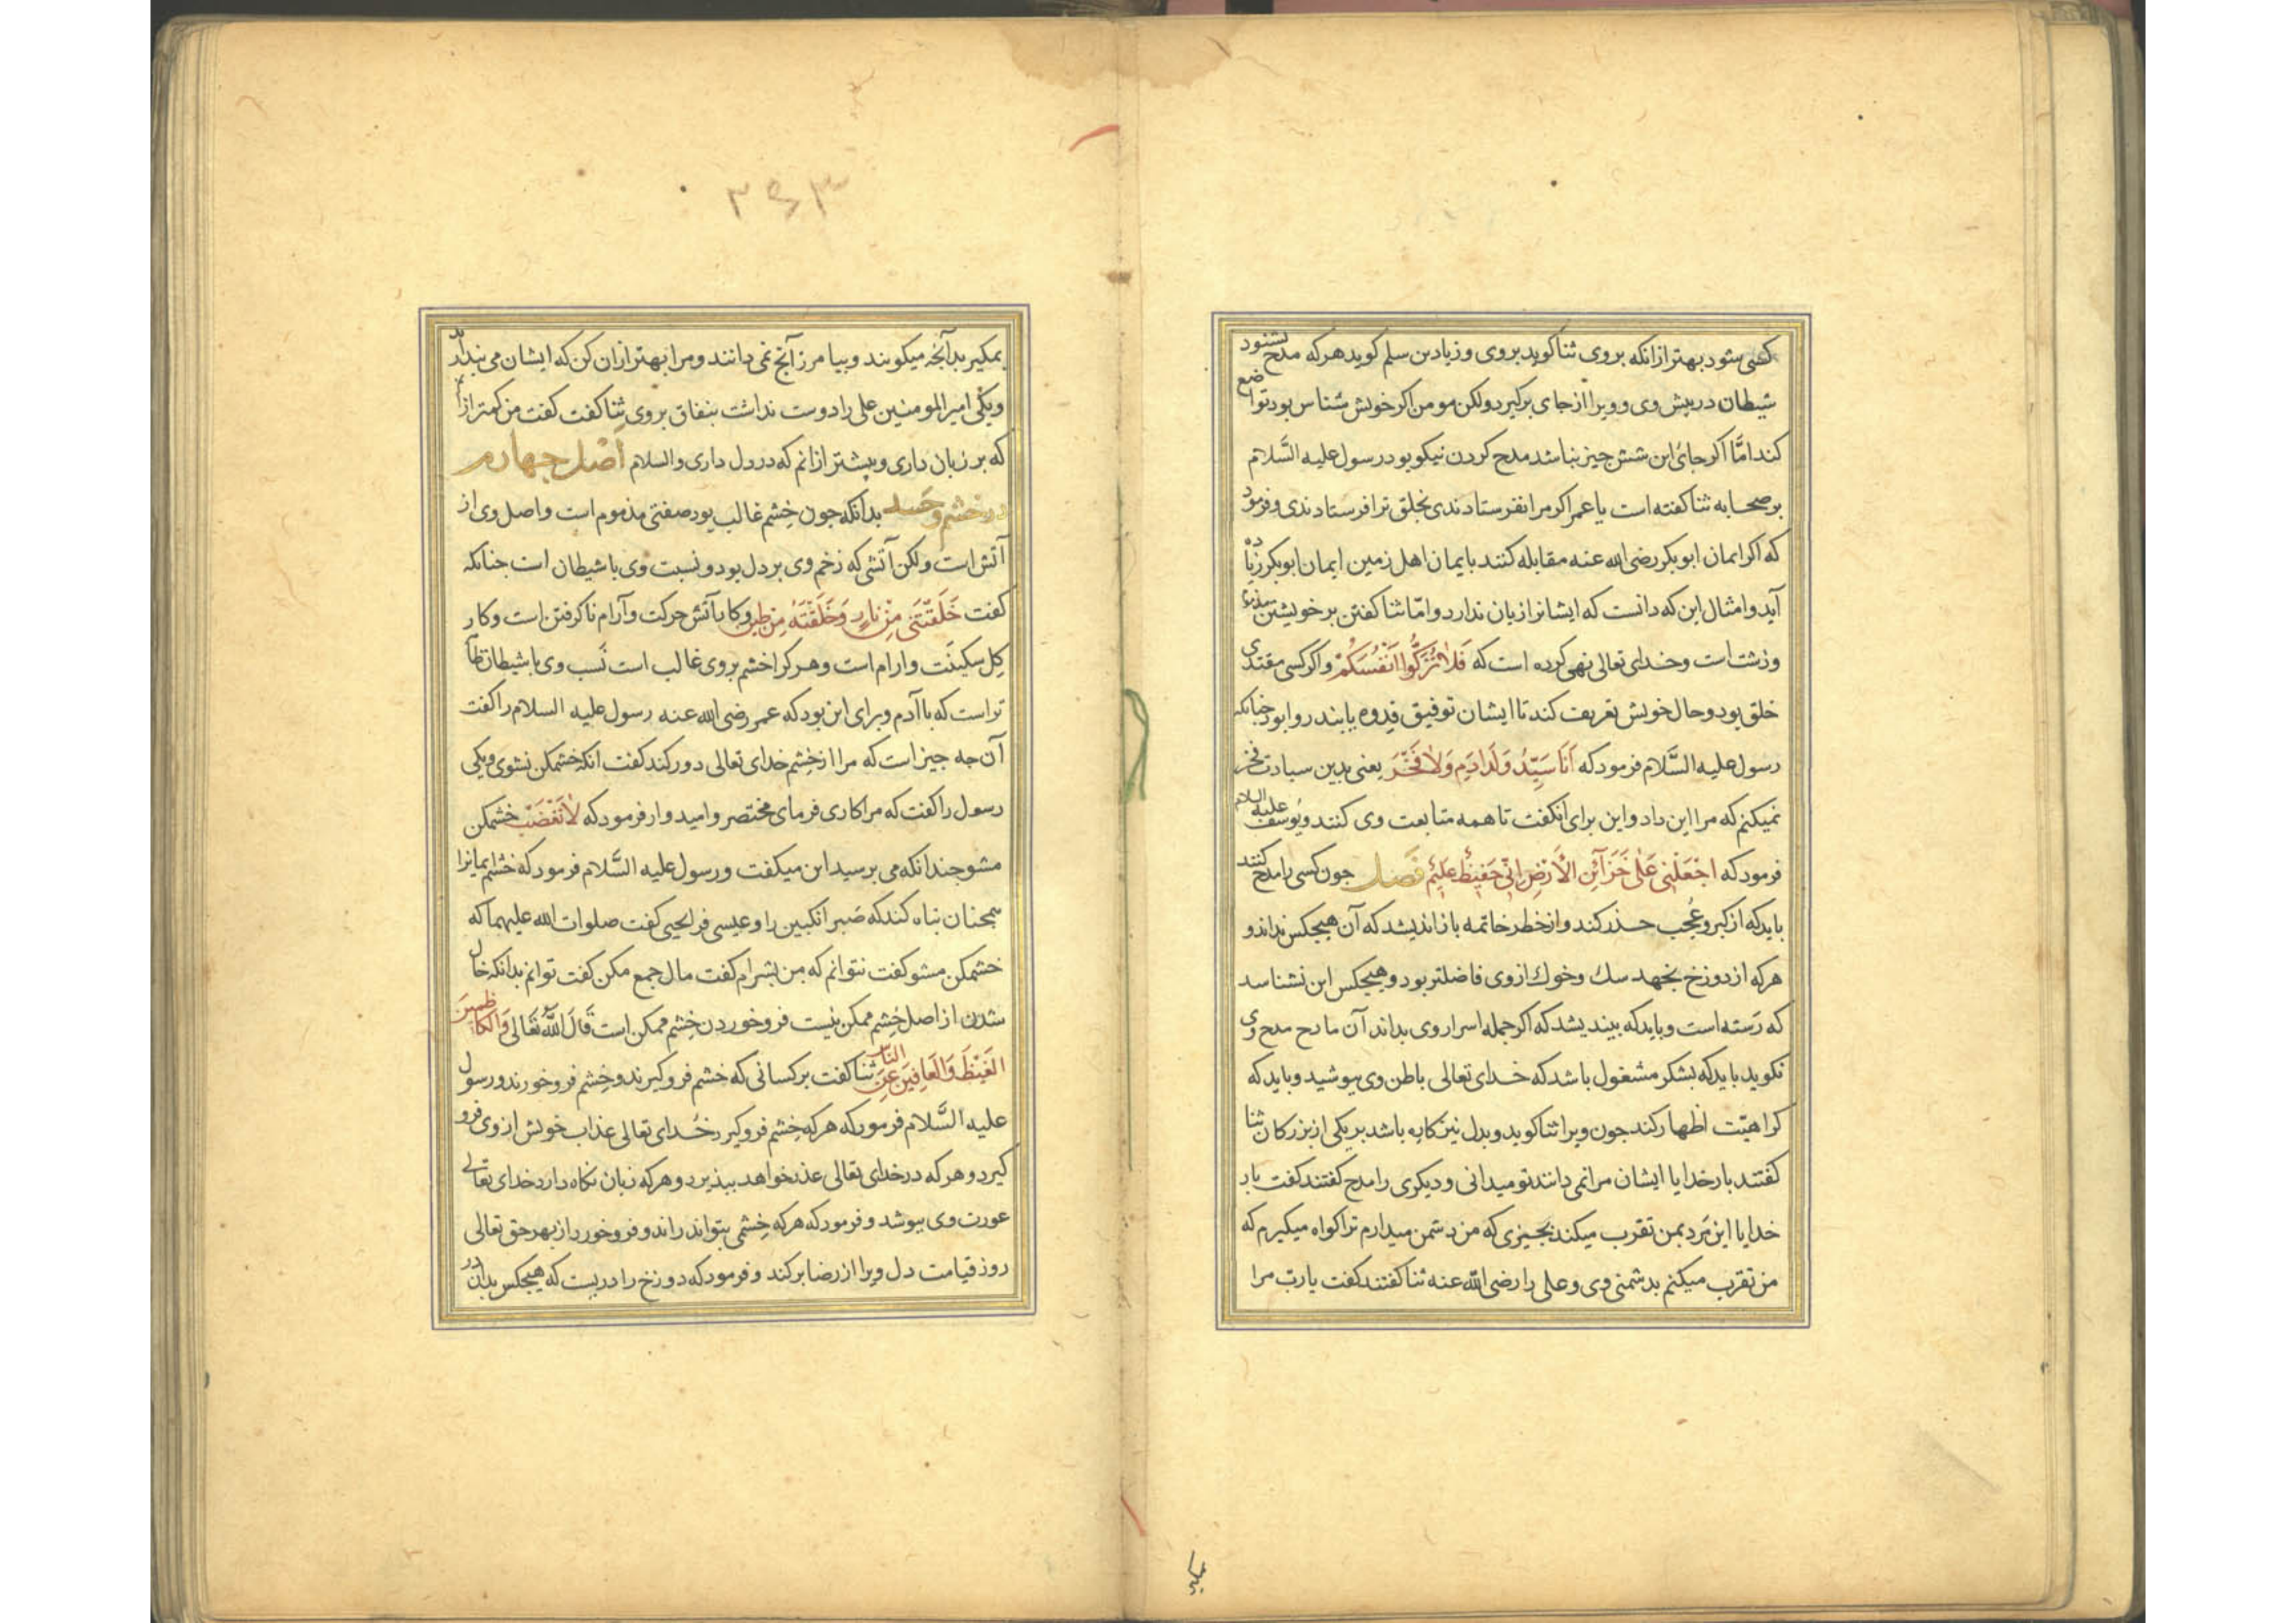 کسی شود بهتر ازانکه بروی ثنا کوید بروی وزیاد بن سلم کوید هرکه مدح بشنود
شیطان در پیش وی و ویرا از جای برکیرد ولکن مومن اکر خویش شناس بود تواضع
کند امّا اکر جائ این شش جیز نباشد مدح کردن نیکو بود رسول علیه السَّلام
بر صحابه ثنا کفته است یا عمر اکر مرا نفرستادندی بخلق ترا فرستادندی و فرمود
که اکر ایمان ابوبکر رضی الله عنه مقابله کنند بایمان اهل زمین ایمان ابوبکر زیاده
آید و امثال این که دانست که ایشانرا زیان ندارد و امّا ثنا کفتن بر خویشتن
وزشت است وخدای تعالی نهی کرده است که فَلاٰ تُزَکُّوا اَنْفُسَکُمْ و اکر کسی مقتدی
خلق بود وحال خویش تعریف کند تا ایشان توفیق قِدوه یابند روا بود جنانکه
رسول علیه السَّلام فرمود که اَنَا سَیِّدُ وَلَدِ اٰدَمِ وَلاٰ فَخْرَ یعنی بدین سیادت فخر
نمیکنم که مرا این داد و این برای آنکفت تا همه متابعت وی کنند و یُوسف علیه السلام
فرمود که اجْعَلْنِی عَلیٰ خَزَآئِنِ الْاَرْضِ اِنِّی حَفِیظٌ عَلِیْمٌ فَصل جون کسی را مدح کنند
باید که از کبر و عُجب حذر کند و از خطر خاتمه باز اندیشد که آن هیجکس نداند و
هرکه از دوزخ بجهد سك وخوك از وی فاضلتر بود و هیجکس این نشناسد
که رَسته است و باید که بیندیشد که اکر جمله اسرار وی بداند آن مادح مدح وی
نکوید باید که بشکر مشغول باشد که خدای تعالی باطن وی بپوشید و باید که
کراهیّت اظهار کند جون ویرا ثنا کوید و بدل نیز کاره باشد بر یکی از بزرکان ثنا
کفتند بار خدایا ایشان مرا نمی دانند تو میدانی و دیکری را مدح کفتند کفت بار
خدایا این مَرد بمن تقرب میکند بجیزی که من دشمن میدارم ترا کواه میکیرم که
من تقرب میکنم بدشمنی وی و علی را رضی الله عنه ثنا کفتند کفت یارب مرا
۳۵۳
بمکیر بدآنجه میکویند و بیامرز آنج نمی دانند و مرا بهتر ازان کن که ایشان می پندارند
ویکی امیر المومنین علی را دوست نداشت بنفاق بروی ثنا کفت کفت من کمتر ازانم
که بر زبان داری و بیشتر ازانم که در دل داری والسلام اصل جهارم
در خشم و حَسد بدانکه جون خِشم غالب بود صفتی مذموم است و اصل وی از
آتش است ولکن آتشی که زخم وی بر دل بود و نسبت وی با شیطان است جنانکه
کفت خَلَقْتَنَی مِنْ نٰارٍ وَخَلَقْتَهُ مِن طِین و کار آتش حرکت و آرام ناکرفتن است و کار
کِل سکینَت و ارام است و هرکرا خشم بروی غالب است نَسب وی با شیطان ظاهر
تر است که با آدم و برای این بود که عمر رضی الله عنه رسول علیه السلام را کفت
آن جه جیز است که مرا از خِشم خدای تعالی دور کند کفت انکه خشمکن نشوی و یکی
رسول را کفت که مرا کاری فرمای مختصر و امیدوار فرمود که لاٰ تَغْضَبْ خشمکن
مشو جندانکه می برسید این میکفت و رسول علیه السَّلام فرمود که خشم ایمانرا
همجنان تباه کند که صَبر انکبین را و عیسی فرا یحیی کفت صلوات الله علیهما که
خشمکن مشو کفت نتوانم که من بشرام کفت مال جمع مکن کفت توانم بدانکه خالی
شدن از اصل خِشم ممکن نیست فروخوردن خِشم ممکن است قَالَ اللهُ تَعٰالی وَالْکاظِمِینَ
الْغَیْظَ وَالْعَافِینَ عَنِ النَّاسِ ثنا کفت بر کسانی که خشم فروکیرند و خِشم فروخورند و رسول
علیه السَّلام فرمود که هرکه خِشم فروکیرد خُدای تعالی عذاب خویش از وی فرو
کیرد و هرکه در خدای تعالی عذر خواهد بپذیرد و هرکه زبان نکاه دارد خدای تعالی
عورت وی بپوشد و فرمود که هرکه خِشمی بتواند راند و فروخورد از بهر حق تعالی
روز قیامت دل ویرا از رضا پر کند و فرمود که دوزخ را دریست که هیجکس بدان در